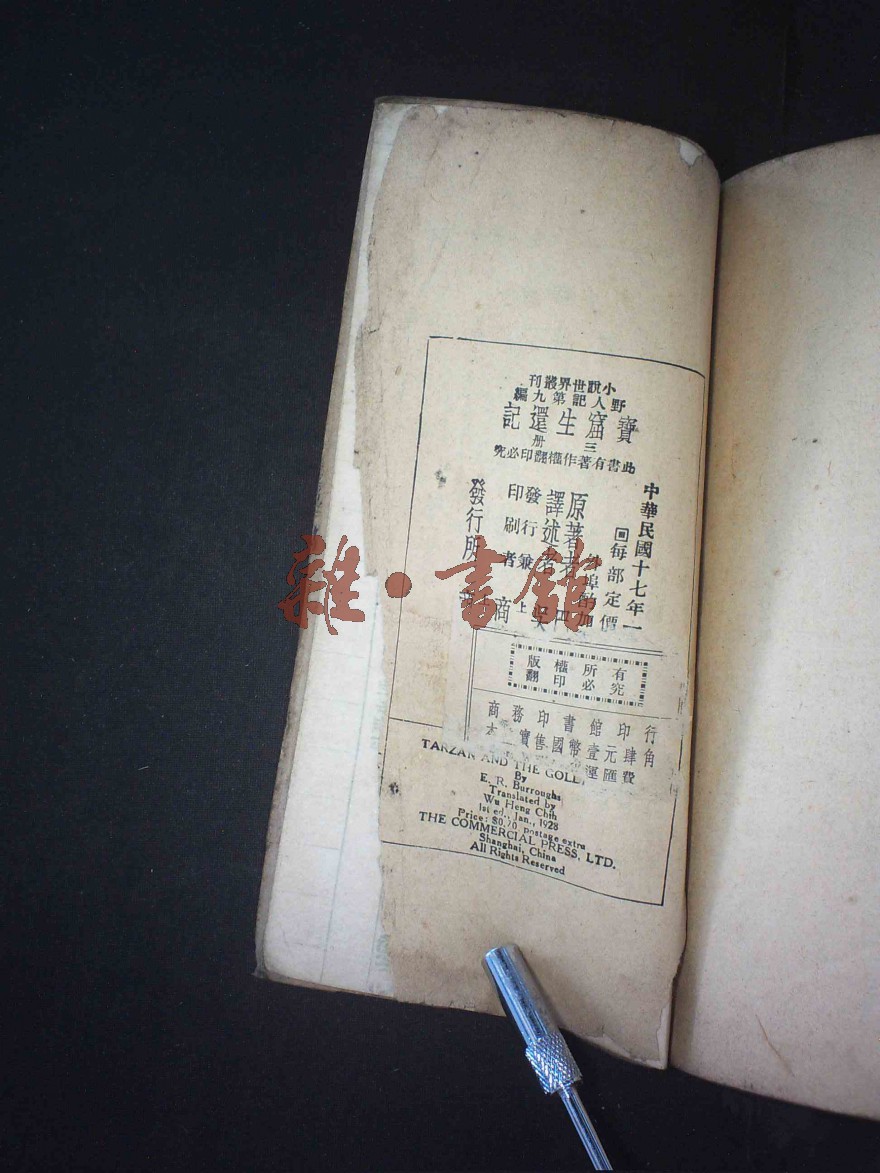 小說世界叢刊
野人記第九編
寶窟生還記
三冊
此書有著作權翻印必究
中華民國十七年一
每部定價
埠酌加
原著者
譯述者 吳
發行兼
印刷者 上 商
發行所
版權所有
翻印必究
商務印書館印行
實售國幣壹元肆角
運匯費
TARZAN AND THE GOLD
By
E. R. Burroughs
Translated by
Wu Heng Chih
1st ed., Jan., 1928
Price: $0.70 postage extra
THE COMMERCIAL PRESS, LTD.
Shanghai, China
All Rights Reserved
雜·書館